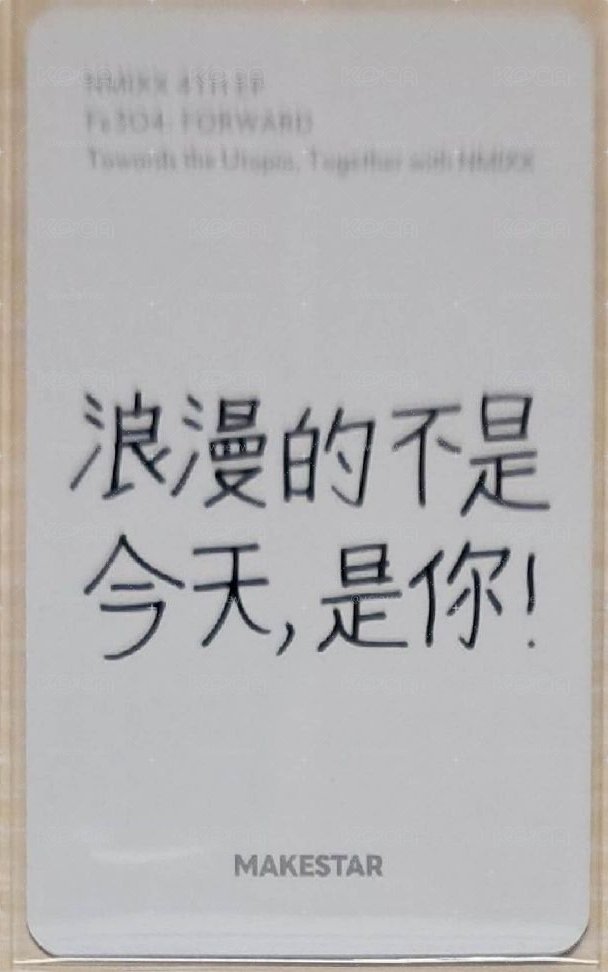 NMIXX 4TH EP
Fe3O4: FORWARD
Towards the Utopia, Together with NMIXX
浪漫的不是
今天,是你!
MAKESTAR